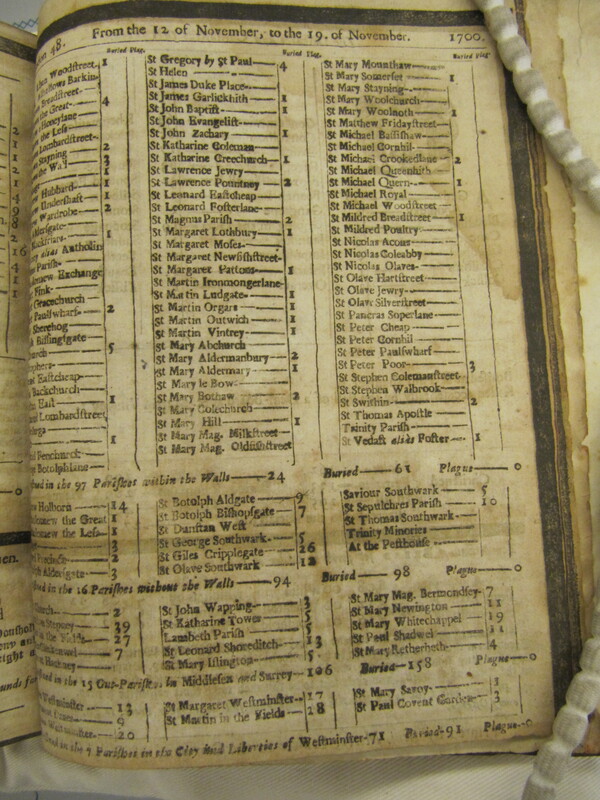 From the 12 of November, to the 19. of November. 1700.
Buried Plag.
Woodstreet 1
Barkin
Breadstreet
the Great 4
Honeylane
the Less
Lombardstreet
Stayning 2
the Wall 3
1
Hubbard 1
Undershaft 1
Wardrobe 2
alias Antholin
Parish
Exchange
Fink
Gracechurch
Paulswharf 2
Sherehog
Billingsgate
5
Eastcheap
Backchurch
East 1
Lombardstreet
1
Fenchurch
Botolphlane
Buried Plag.
St Gregory by St Paul 4
St Helen
St James Duke Place
St James Garlickhith 1
St John Baptist 1
St John Evangelist
St John Zachary 1
St Katharine Coleman
St Katharine Creechurch 1
St Lawrence Jewry
St Lawrence Pountney 2
St Leonard Eastcheap
St Leonard Fosterlane
St Magnus Parish 2
St Margaret Lothbury 1
St Margaret Moses
St Margaret Newfishstreet
St Margaret Pattons 1
St Martin Ironmongerlane
St Martin Ludgate 1
St Martin Orgars 1
St Martin Outwich 1
St Martin Vintrey 1
St Mary Abchurch
St Mary Aldermanbury 2
St Mary Aldermary 1
St Mary le Bow
St Mary Bothaw 2
St Mary Colechurch
St Mary Hill 1
St Mary Mag. Milkstreet
St Mary Mag. Oldfishstreet
Buried Plag.
St Mary Mounthaw
St Mary Somerset 1
St Mary Stayning
St Mary Woolchurch
St Mary Woolnoth 1
St Matthew Fridaystreet
St Michael Bassishaw
St Michael Cornhil
St Michael Crookedlane 2
St Michael Queenhith
St Michael Quern 1
St Michael Royal
St Michael Woodstreet
St Mildred Breadstreet 1
St Mildred Poultry
St Nicolas Acons
St Nicolas Coleabby
St Nicolas Olaves
St Olave Hartstreet
St Olave Jewry
St Olave Silverstreet
St Pancras Soperlane
St Peter Cheap
St Peter Cornhil
St Peter Paulswharf
St Peter Poor 3
St Stephen Colemanstreet
St Stephen Walbrook
St Swithin 2
St Thomas Apostle
Trinity Parish
St Vedast alias Foster 1
in the 97 Parishes within the Walls 24 Buried 61 Plague 0
Holborn 14
the Great 1
the Less 1
3
2
Aldersgate 3
St Botolph Aldgate 9
St Botolph Bishopsgate 7
St Dunstan West
St George Southwark 5
St Giles Cripplegate 26
St Olave Southwark 12
Saviour Southwark 5
St Sepulchres Parish 10
St Thomas Southwark
Trinity Minories
At the Pesthouse
in the 16 Parishes without the Walls 94 Buried 98 Plague 0
2
Stepney 39
27
7
Hackney
St John Wapping 3
St Katharine Tower 5
Lambeth Parish 1
St Leonard Shoreditch 13
St Mary Islington 5
St Mary Mag. Bermondsey 7
St Mary Newington 11
St Mary Whitechappel 19
St Paul Shadwel 11
St Mary Rotherheth 4
in the 15 Out-Parishes in Middlesex and Surrey 106 Buried 158 Plague 0
13
9
20
St Margaret Westminster 17
St Martin in the Fields 28
St Mary Savoy 3
St Paul Covent Garden 3
in the 7 Parishes in the City and Liberties of Westminster 71 Buried 91 Plague 0